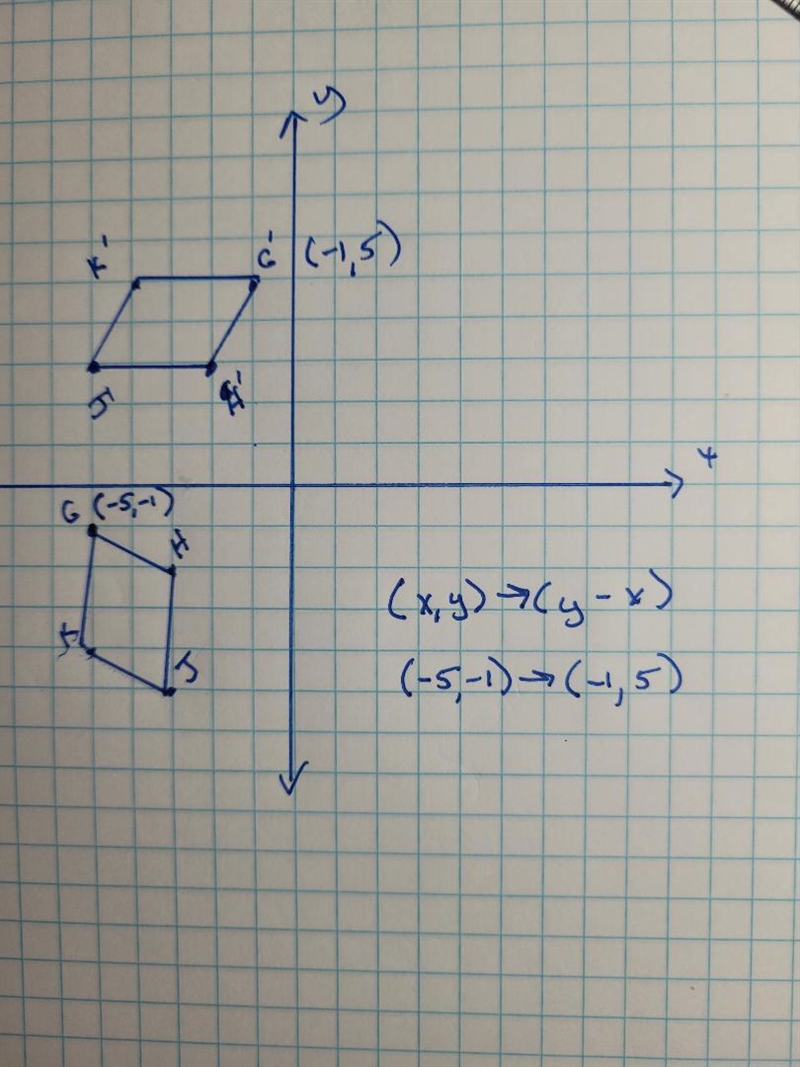 y
K' G' (-1,5)
J' H'
x
G (-5,-1)
H
K
J
(x,y)→(y-x)
(-5,-1)→(-1,5)